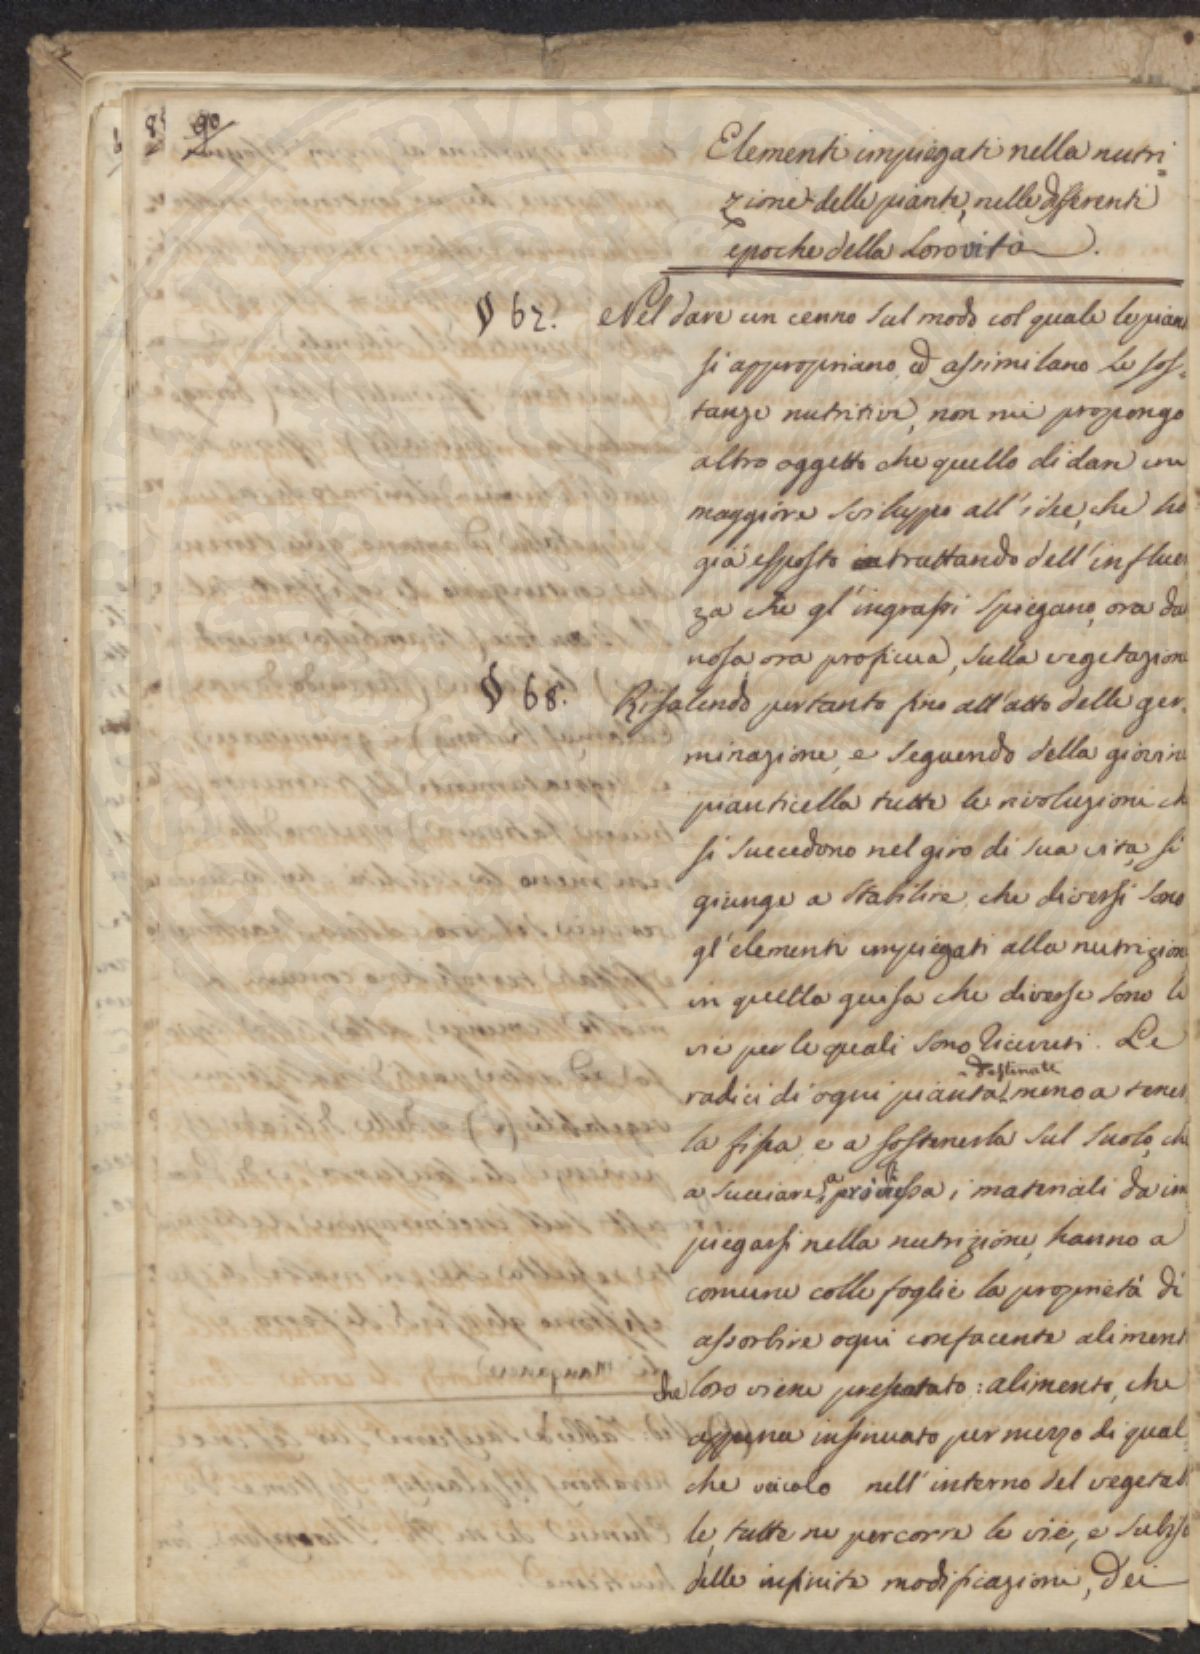 90
Elementi impiegati nella nutri=
zione delle piante, nelle differenti
epoche della loro vita.
§ 67. Nel dare un cenno sul modo col quale le pian
si appropriano, ed assimilano le sos=
tanze nutritive, non mi propongo
altro oggetto che quello di dare una
maggiore sviluppo all'idee, che ho
già esposto trattando dell'influen
za che gl'ingrassi spiegano, ora da
nosa, ora proficua, sulla vegetazione
§ 68. Risalendo pertanto fino all'atto delle ger=
minazione, e seguendo della giovine
pianticella tutte le rivoluzioni ch
si succedono nel giro di sua vita, si
giunge a stabilire, che diversi sono
gl'elementi impiegati alla nutrizione
in quella guisa che diverse sono le
vie per le quali sono ricevuti. Le
destinate
radici di ogni pianta meno a tener
la fissa, e a sostenerla sul suolo, ch
a succiare, i materiali da im
piegarsi nella nutrizione, hanno a
comune colle foglie la proprietà di
assorbire ogni confacente aliment
che loro viene presentato: alimento, che
appena insinuato per mezzo di qual=
che veicolo nell'interno del vegetab
le, tutte ne percorre le vie, e subisce
delle infinite modificazioni, Dei